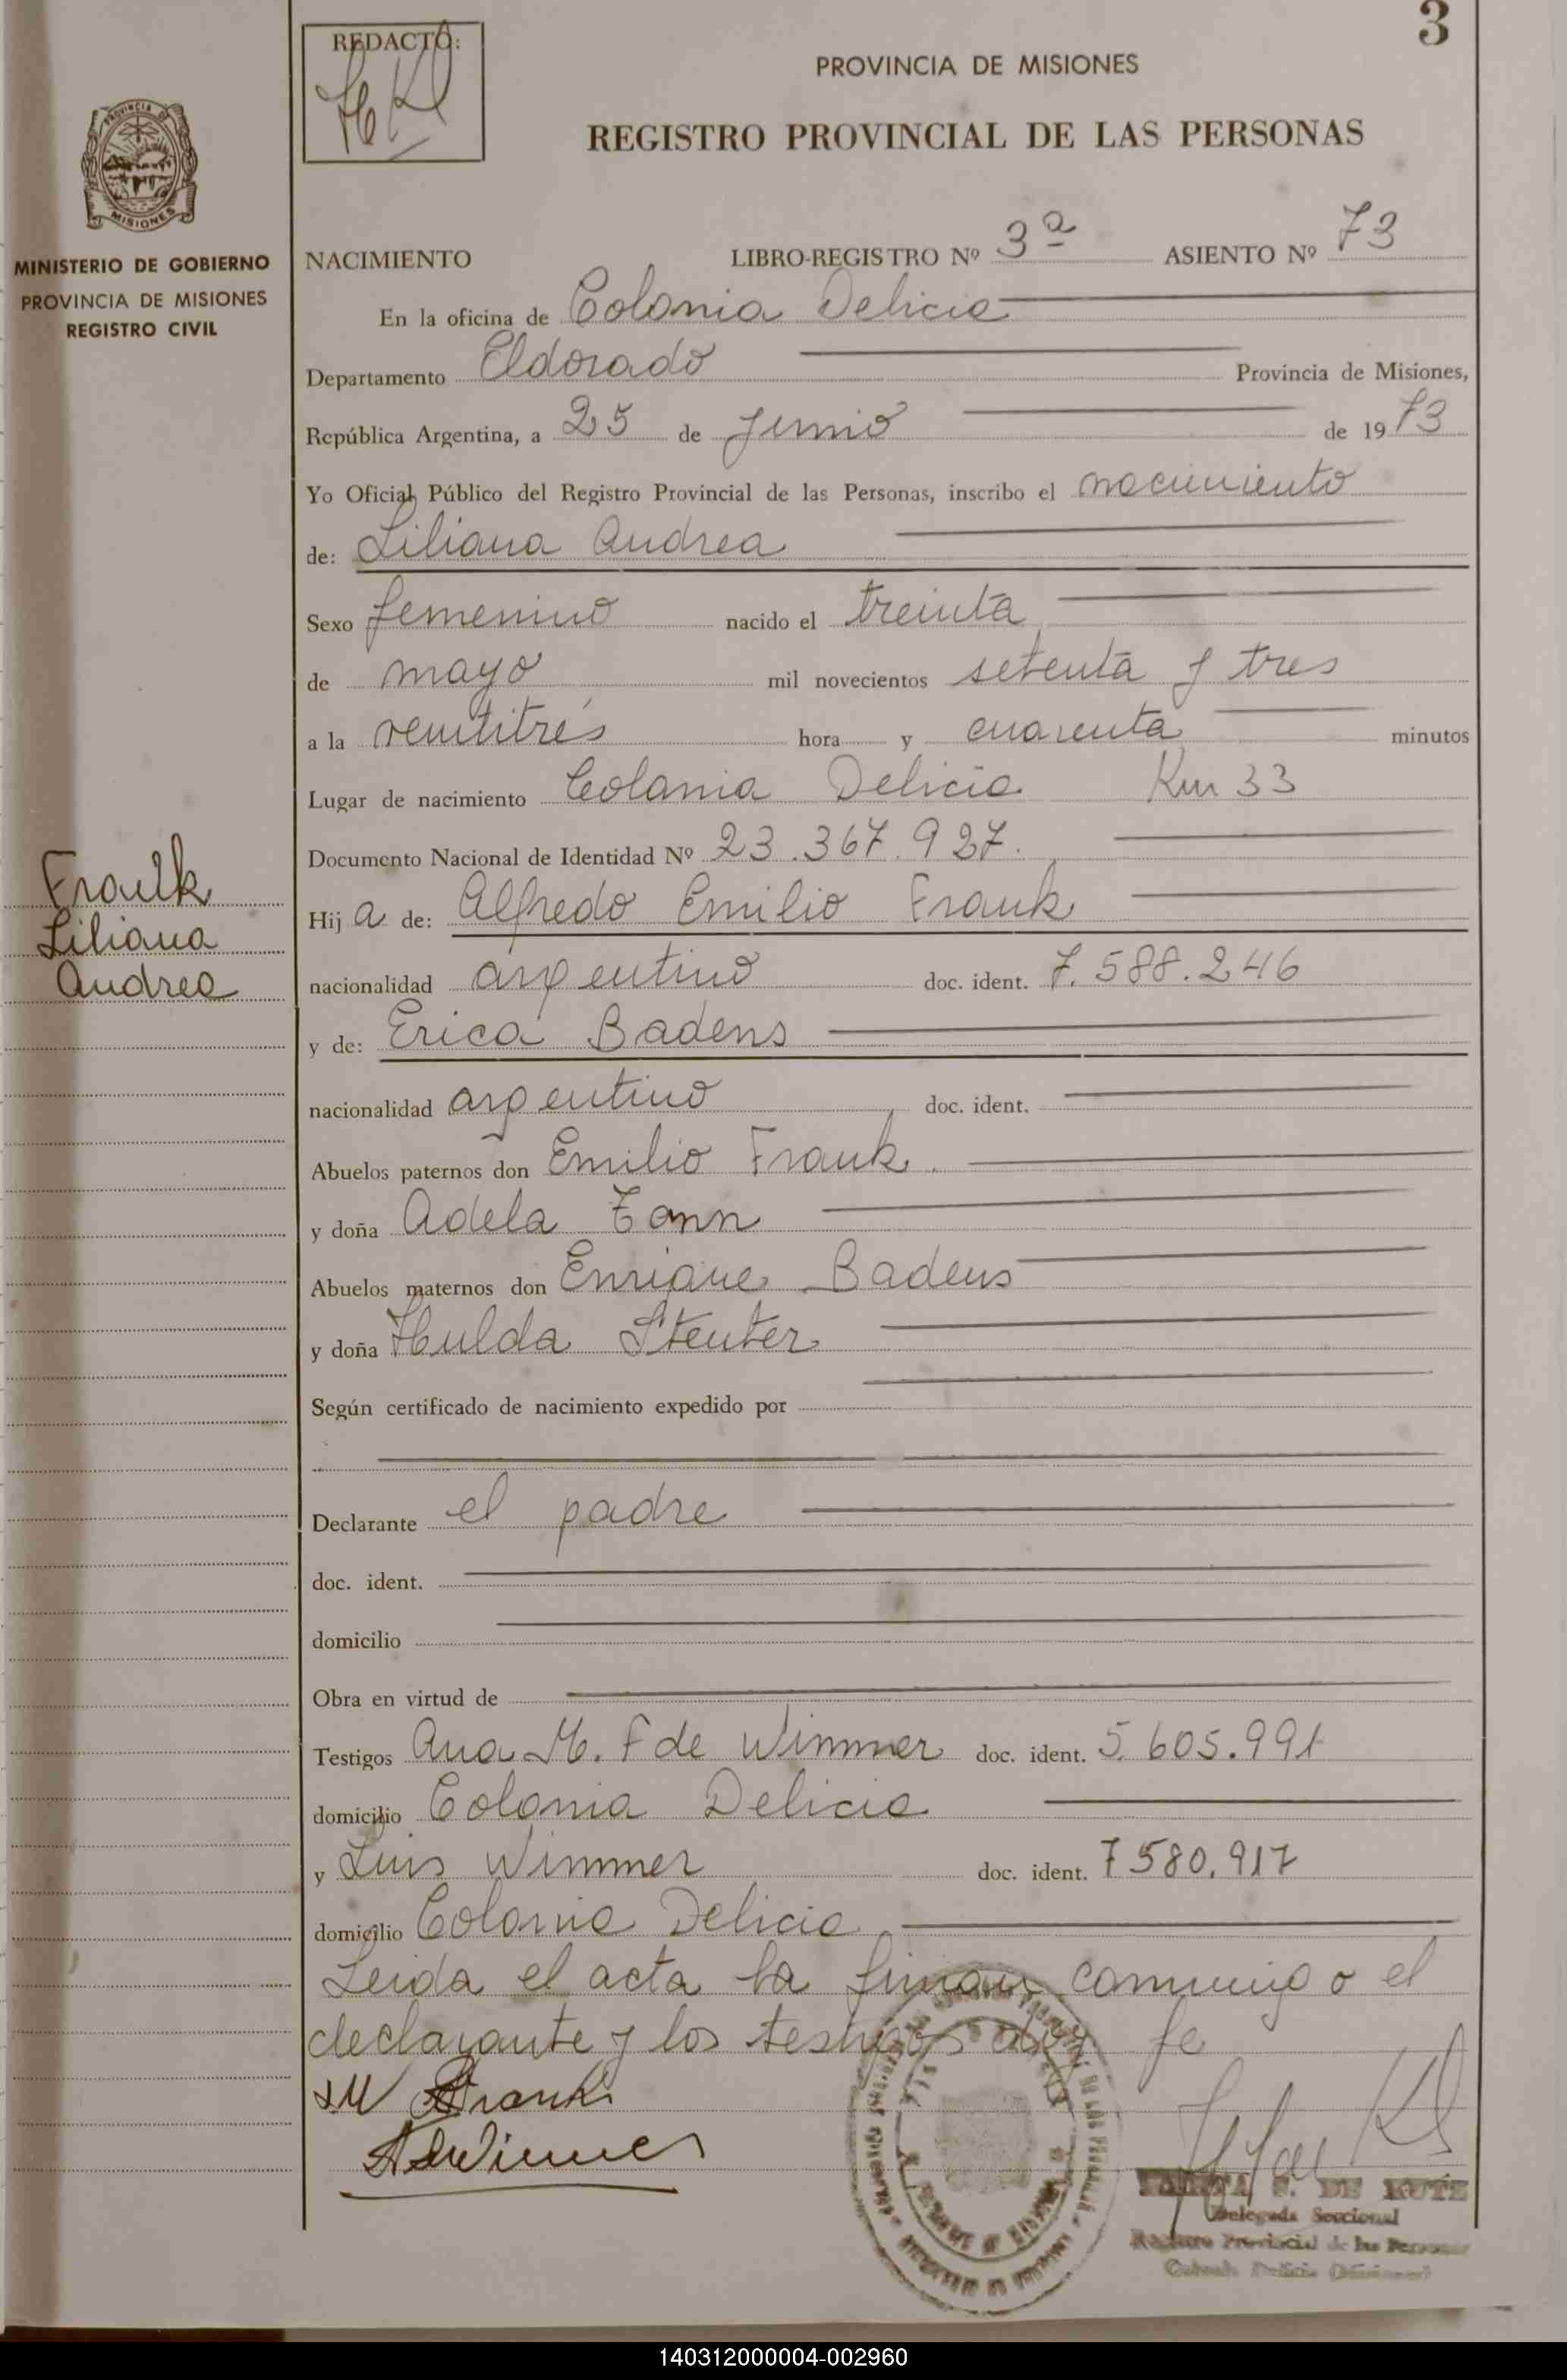 3
REDACTÓ:
PROVINCIA DE MISIONES
REGISTRO PROVINCIAL DE LAS PERSONAS
PROVINCIA DE
MISIONES
MINISTERIO DE GOBIERNO
PROVINCIA DE MISIONES
REGISTRO CIVIL
NACIMIENTO LIBRO-REGISTRO Nº 3ª ASIENTO Nº 73
En la oficina de Colonia Delicia
Departamento Eldorado Provincia de Misiones,
República Argentina, a 25 de Junio de 1973
Yo Oficial Público del Registro Provincial de las Personas, inscribo el nacimiento
de: Liliana Andrea
Sexo femenino nacido el treinta
de mayo mil novecientos setenta y tres
a la veintitrés hora y cuarenta minutos
Lugar de nacimiento Colonia Delicia Km 33
Documento Nacional de Identidad Nº 23.367.927.
Frank
Liliana
Andrea
Hij a de: Alfredo Emilio Frank
nacionalidad argentino doc. ident. 7.588.246
y de: Erica Badens
nacionalidad argentino doc. ident.
Abuelos paternos don Emilio Frank.
y doña Adela Tonn
Abuelos maternos don Enrique Badens
y doña Hulda Stenter
Según certificado de nacimiento expedido por
Declarante el padre
doc. ident.
domicilio
Obra en virtud de
Testigos Ana M. F de Wimmer doc. ident. 5.605.991
domicilio Colonia Delicia
y Luis Wimmer doc. ident. 7580.917
domicilio Colonia Delicia
Leida el acta la firman conmigo el
declarante y los testigos doy fe
Frank
S. DE KUTZ
Delegada Seccional
Registro Provincial de las Personas
Colonia Delicia (Misiones)
140312000004-002960